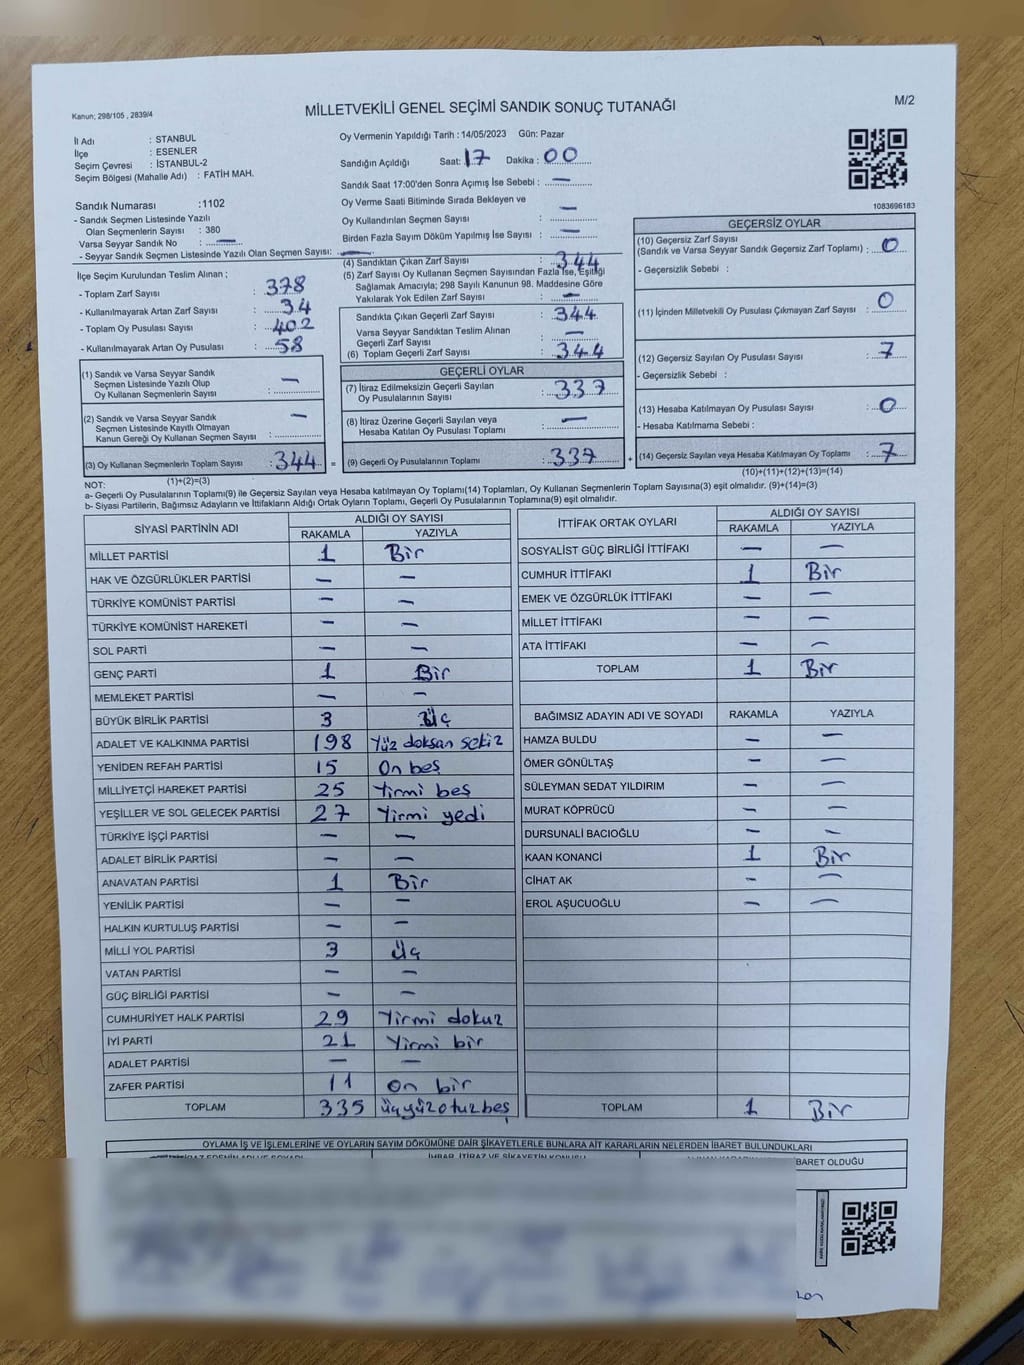 Kanun; 298/105 , 2839/4
MİLLETVEKİLİ GENEL SEÇİMİ SANDIK SONUÇ TUTANAĞI
M/2
İl Adı : STANBUL
İlçe : ESENLER
Seçim Çevresi : İSTANBUL-2
Seçim Bölgesi (Mahalle Adı) : FATİH MAH.
Sandık Numarası :1102
- Sandık Seçmen Listesinde Yazılı
Olan Seçmenlerin Sayısı : 380
Varsa Seyyar Sandık No : —
- Seyyar Sandık Seçmen Listesinde Yazılı Olan Seçmen Sayısı: —
İlçe Seçim Kurulundan Teslim Alınan ;
- Toplam Zarf Sayısı : 378
- Kullanılmayarak Artan Zarf Sayısı : 34
- Toplam Oy Pusulası Sayısı : 402
- Kullanılmayarak Artan Oy Pusulası : 58
(1) Sandık ve Varsa Seyyar Sandık
Seçmen Listesinde Yazılı Olup
Oy Kullanan Seçmenlerin Sayısı : —
(2) Sandık ve Varsa Seyyar Sandık
Seçmen Listesinde Kayıtlı Olmayan
Kanun Gereği Oy Kullanan Seçmen Sayısı : —
(3) Oy Kullanan Seçmenlerin Toplam Sayısı : 344 =
(1)+(2)=(3)
Oy Vermenin Yapıldığı Tarih : 14/05/2023 Gün: Pazar
Sandığın Açıldığı Saat: 17 Dakika : 00
Sandık Saat 17:00'den Sonra Açımış İse Sebebi : —
Oy Verme Saati Bitiminde Sırada Bekleyen ve
Oy Kullandırılan Seçmen Sayısı : —
Birden Fazla Sayım Döküm Yapılmış İse Sayısı : —
(4) Sandıktan Çıkan Zarf Sayısı : 344
(5) Zarf Sayısı Oy Kullanan Seçmen Sayısından Fazla İse, Eşitliği
Sağlamak Amacıyla; 298 Sayılı Kanunun 98. Maddesine Göre
Yakılarak Yok Edilen Zarf Sayısı : —
Sandıkta Çıkan Geçerli Zarf Sayısı : 344
Varsa Seyyar Sandıktan Teslim Alınan
Geçerli Zarf Sayısı : —
(6) Toplam Geçerli Zarf Sayısı : 344
GEÇERLİ OYLAR
(7) İtiraz Edilmeksizin Geçerli Sayılan
Oy Pusulalarının Sayısı : 337
(8) İtiraz Üzerine Geçerli Sayılan veya
Hesaba Katılan Oy Pusulası Toplamı : —
(9) Geçerli Oy Pusulalarının Toplamı : 337 +
1083696183
GEÇERSİZ OYLAR
(10) Geçersiz Zarf Sayısı
(Sandık ve Varsa Seyyar Sandık Geçersiz Zarf Toplamı) : 0
- Geçersizlik Sebebi :
(11) İçinden Milletvekili Oy Pusulası Çıkmayan Zarf Sayısı : 0
(12) Geçersiz Sayılan Oy Pusulası Sayısı : 7
- Geçersizlik Sebebi :
(13) Hesaba Katılmayan Oy Pusulası Sayısı : 0
- Hesaba Katılmama Sebebi :
(14) Geçersiz Sayılan veya Hesaba Katılmayan Oy Toplamı : 7
(10)+(11)+(12)+(13)=(14)
NOT:
a- Geçerli Oy Pusulalarının Toplamı(9) ile Geçersiz Sayılan veya Hesaba katılmayan Oy Toplamı(14) Toplamları, Oy Kullanan Seçmenlerin Toplam Sayısına(3) eşit olmalıdır. (9)+(14)=(3)
b- Siyasi Partilerin, Bağımsız Adayların ve İttifakların Aldığı Ortak Oyların Toplamı, Geçerli Oy Pusulalarının Toplamına(9) eşit olmalıdır.
SİYASİ PARTİNİN ADI ALDIĞI OY SAYISI
RAKAMLA YAZIYLA
MİLLET PARTİSİ 1 Bir
HAK VE ÖZGÜRLÜKLER PARTİSİ — —
TÜRKİYE KOMÜNİST PARTİSİ — —
TÜRKİYE KOMÜNİST HAREKETİ — —
SOL PARTİ — —
GENÇ PARTİ 1 Bir
MEMLEKET PARTİSİ — —
BÜYÜK BİRLİK PARTİSİ 3 Üç
ADALET VE KALKINMA PARTİSİ 198 Yüz doksan sekiz
YENİDEN REFAH PARTİSİ 15 On beş
MİLLİYETÇİ HAREKET PARTİSİ 25 Yirmi beş
YEŞİLLER VE SOL GELECEK PARTİSİ 27 Yirmi yedi
TÜRKİYE İŞÇİ PARTİSİ — —
ADALET BİRLİK PARTİSİ — —
ANAVATAN PARTİSİ 1 Bir
YENİLİK PARTİSİ — —
HALKIN KURTULUŞ PARTİSİ — —
MİLLİ YOL PARTİSİ 3 Üç
VATAN PARTİSİ — —
GÜÇ BİRLİĞİ PARTİSİ — —
CUMHURİYET HALK PARTİSİ 29 Yirmi dokuz
İYİ PARTİ 21 Yirmi bir
ADALET PARTİSİ — —
ZAFER PARTİSİ 11 On bir
TOPLAM 335 üçyüzotuzbeş
İTTİFAK ORTAK OYLARI ALDIĞI OY SAYISI
RAKAMLA YAZIYLA
SOSYALİST GÜÇ BİRLİĞİ İTTİFAKI — —
CUMHUR İTTİFAKI 1 Bir
EMEK VE ÖZGÜRLÜK İTTİFAKI — —
MİLLET İTTİFAKI — —
ATA İTTİFAKI — —
TOPLAM 1 Bir
BAĞIMSIZ ADAYIN ADI VE SOYADI RAKAMLA YAZIYLA
HAMZA BULDU — —
ÖMER GÖNÜLTAŞ — —
SÜLEYMAN SEDAT YILDIRIM — —
MURAT KÖPRÜCÜ — —
DURSUNALİ BACIOĞLU — —
KAAN KONANCİ 1 Bir
CİHAT AK — —
EROL AŞUCUOĞLU — —
TOPLAM 1 Bir
OYLAMA İŞ VE İŞLEMLERİNE VE OYLARIN SAYIM DÖKÜMÜNE DAİR ŞİKAYETLERLE BUNLARA AİT KARARLARIN NELERDEN İBARET BULUNDUKLARI
İHBAR, İTİRAZ VE ŞİKAYETİN KONUSU
BARET OLDUĞU